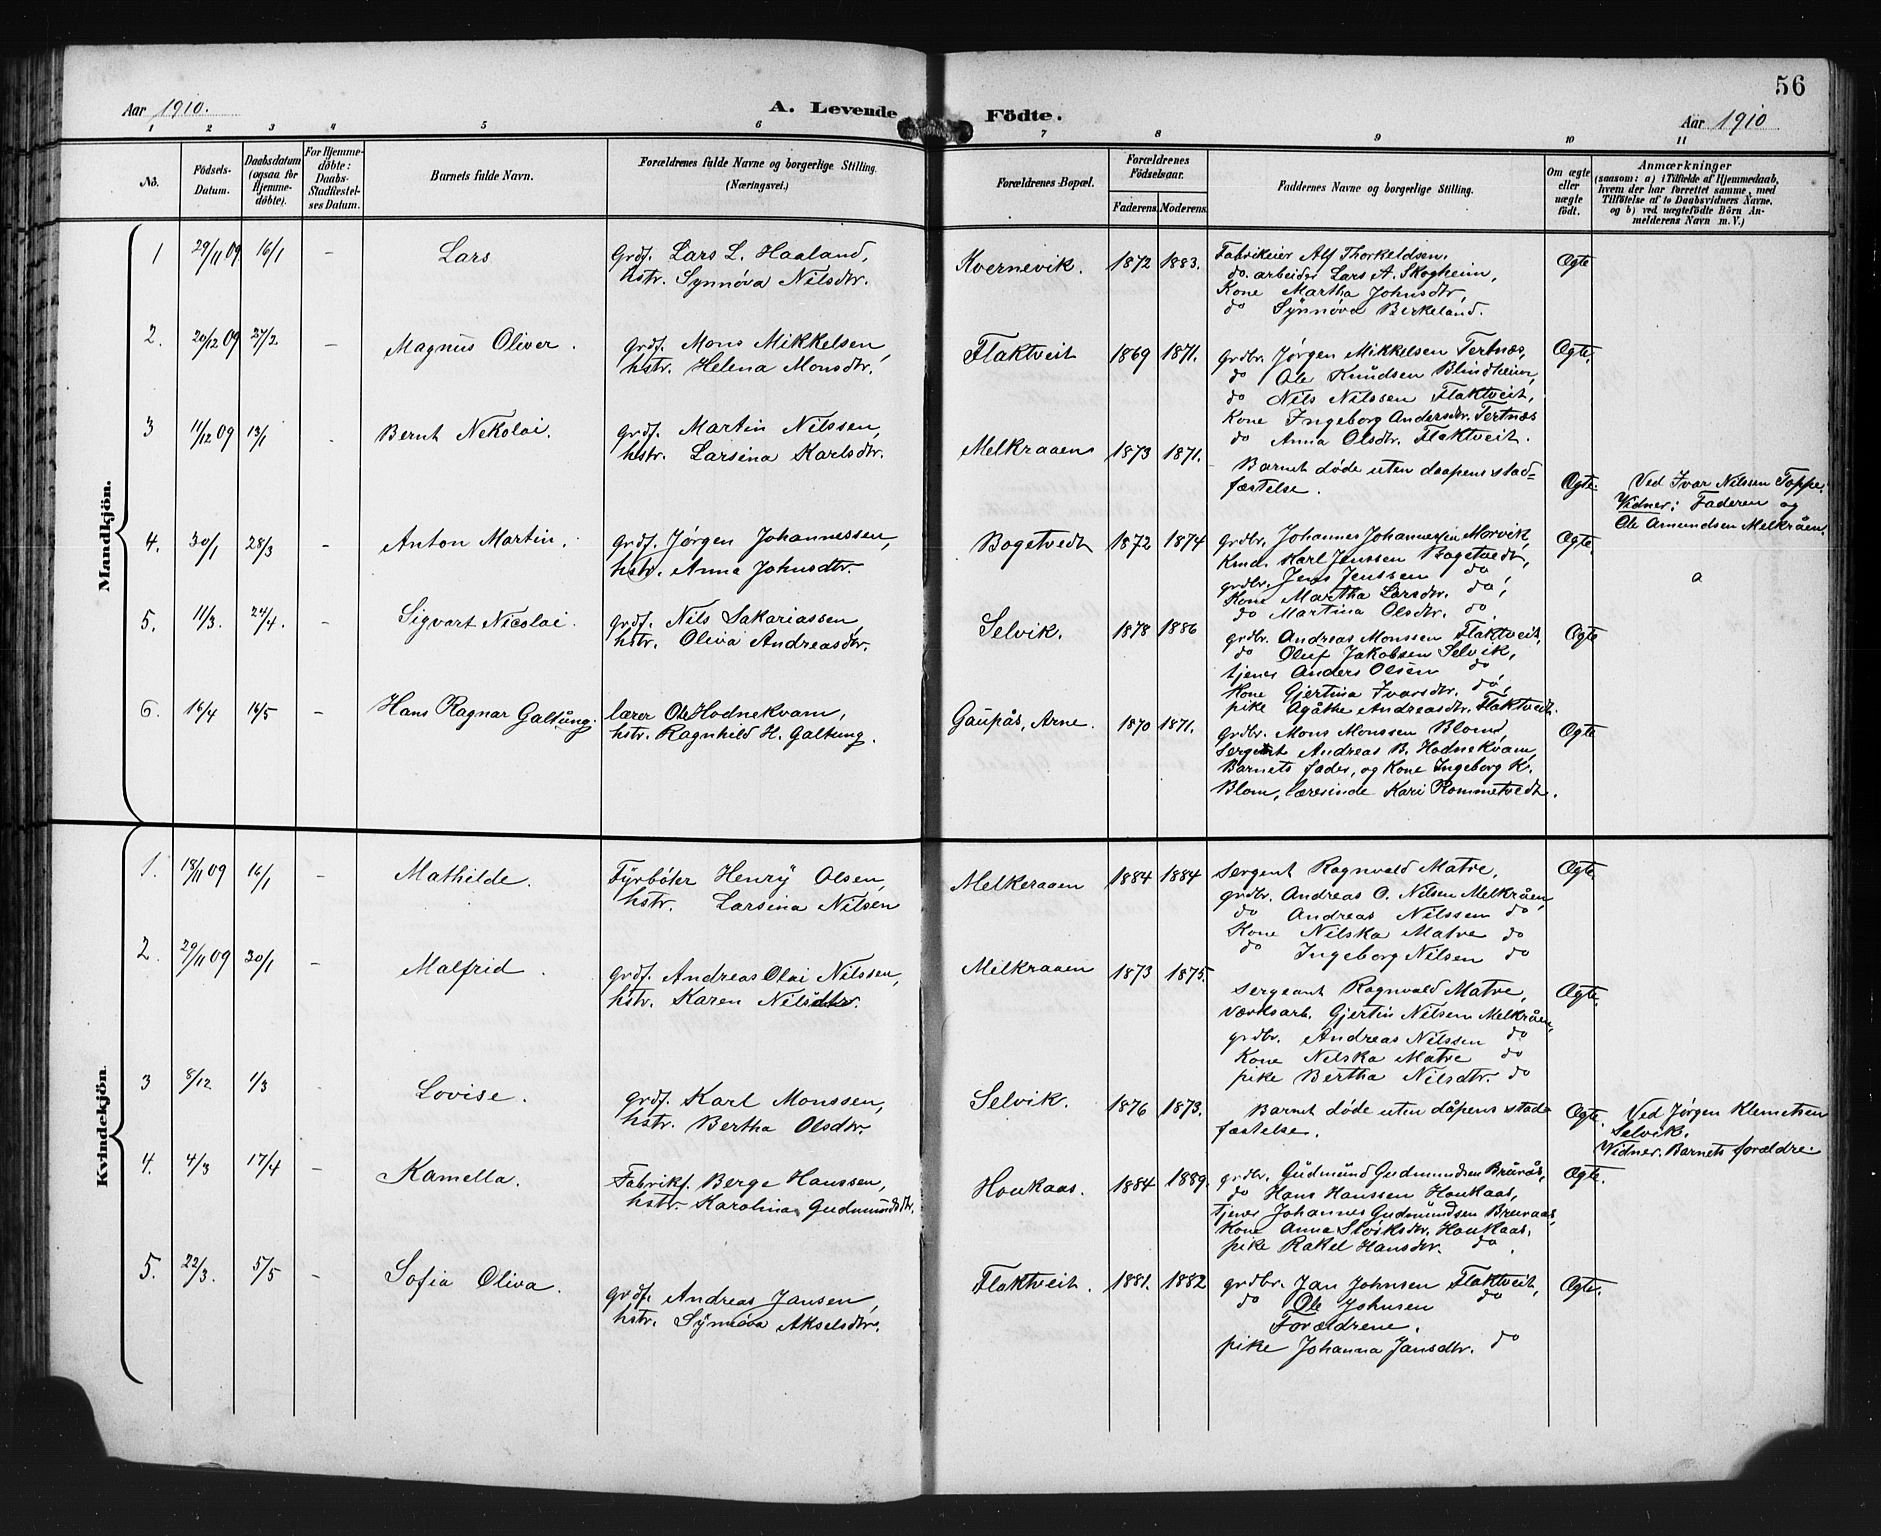 56
Aar 1910.
A. Levende Födte.
Aar 1910
1 2 3 4 5 6 7 8 9 10 11
No.
Födsels-Datum.
Daabsdatum (ogsaa for Hjemme-döbte).
For Hjemme-döbte: Daabs-Stadfæstel-ses Datum.
Barnets fulde Navn.
Forældrenes fulde Navne og borgerlige Stilling. (Næringsvei.)
Forældrenes Bopæl.
Forældrenes Födselsaar.
Faderens. Moderens.
Faddernes Navne og borgerlige Stilling.
Om ægte eller uægte födt.
Anmærkninger
(saasom: a) i Tilfælde af Hjemmedaab,
hvem der har forrettet samme, med
Tilföielse af to Daabsvidners Navne.
og b) ved uægtefödte Börn An-
melderens Navn m. V.)
Mandkjön.
1 29/11 09 16/1 – Lars
Grdf. Lars L. Haaland,
hstr. Synnøva Nilsdtr.
Kvernevik. 1872 1883.
Fabrikeier Alf Thorkeldsen.
do. arbeider Lars A. Skogheim,
Kone Martha Johnsdtr,
do Synnøva Birkeland.
Ægte
2. 20/12 09 27/2. – Magnus Oliver.
grdf. Mons Mikkelsen,
hstr. Helena Monsdtr.
Flaktveit 1869 1871.
grdbr. Jørgen Mikkelsen Tertnæs,
do Ole Knudsen Blindheim,
do Nils Nilssen Flaktveit,
Kone Ingeborg Andersdtr. Tertnæs
do Anna Olsdtr. Flaktveit.
Ægte.
3 11/12 09 13/1 – Bernt Nekolai.
grdf. Martin Nilssen,
hstr. Larsina Karlsdtr.
Melkraaen 1873 1871.
Barnet døde uten daapens stad=
fæstelse.
Ægte.
Ved Ivar Nilssen Toppe.
Vidner: Faderen og
Ole Amundsen Melkråen.
4. 30/1 28/3 – Anton Martin.
grdf. Jørgen Johannessen,
hstr. Anna Johnsdtr.
Bogetvedt 1872 1874
grdbr. Johannes Johannessen Morvik,
Kmd. Karl Jenssen Bogetvedt,
grdbr. Jens Jenssen do,
Kone Martha Larsdtr. do,
do Martina Olsdtr. do.
Ægte
a
5. 11/3. 24/4. – Sigvart Nicolai.
grdf. Nils Sakariassen,
hstr. Oliva Andreasdtr.
Selvik. 1878 1886
grdbr. Andreas Monssen Flaktveit,
do Oluf Jakobsen Selvik,
tjener Anders Olsen do
Kone Gjertina Ivarsdtr. do,
pike Agåthe Andreasdtr. Flaktveit.
Ægte
6. 16/4 16/5 – Hans Ragnar Galtung.
lærer Ole Hodnekvam,
hstr. Ragnhild H. Galtung.
Gaupås, Arne. 1870 1871.
grdbr. Mons Monssen Blom,
Sergent Andreas B. Hodnekvam,
Barnets fader, og Kone Ingeborg K.
Blom, læresinde Kari Rommetvedt.
Ægte
Kvindekjön.
1. 18/11 09 16/1 – Mathilde.
Fyrböter Henry Olsen,
hstr. Larsina Nilsen
Melkeraaen 1884 1884
Sergent Ragnvald Matre,
grdbr. Andreas O. Nilsen Melkråen,
do Andreas Nilssen do
Kone Nilska Matre do
do Ingeborg Nilsen do
Ægte.
2. 29/11 09 30/1 – Malfrid.
grdf. Andreas Olai Nilssen,
hstr. Karen Nilsdtr.
Melkraaen 1873 1875.
Sergeant Ragnvald Matre,
Værksarb. Gjertin Nilsen Melkråen,
grdbr. Andreas Nilssen do
Kone Nilska Matre do
pike Bertha Nilsdtr. do
Ægte.
3 8/12 1/3 – Lovise.
grdf. Karl Monssen,
hstr. Bertha Olsdtr.
Selvik. 1876 1873.
Barnet døde uten dåpens stad-
fæstelse.
Ægte.
Ved Jørgen Klemetsen
Selvik.
Vidner. Barnets forældre.
4. 4/3 17/4 – Kamella.
Fabrikf. Berge Hanssen,
hstr. Karolina Gudmundsdtr.
Houkaas. 1884 1889.
grdbr. Gudmund Gudmundsen Brurås,
do Hans Hanssen Houkaas,
tjener Johannes Gudmundsen Bruraas,
Kone Anna Størksdtr. Houkaas,
pike Rakel Hansdtr. do.
Ægte.
5. 22/3. 5/5 – Sofia Oliva.
grdf. Andreas Jansen,
hstr. Synnöva Akselsdtr.
Flaktveit. 1881. 1882
grdbr. Jan Johnsen Flaktveit,
do Ole Johnsen do
Forældrene.
pike Johanna Jansdtr. do
Ægte.